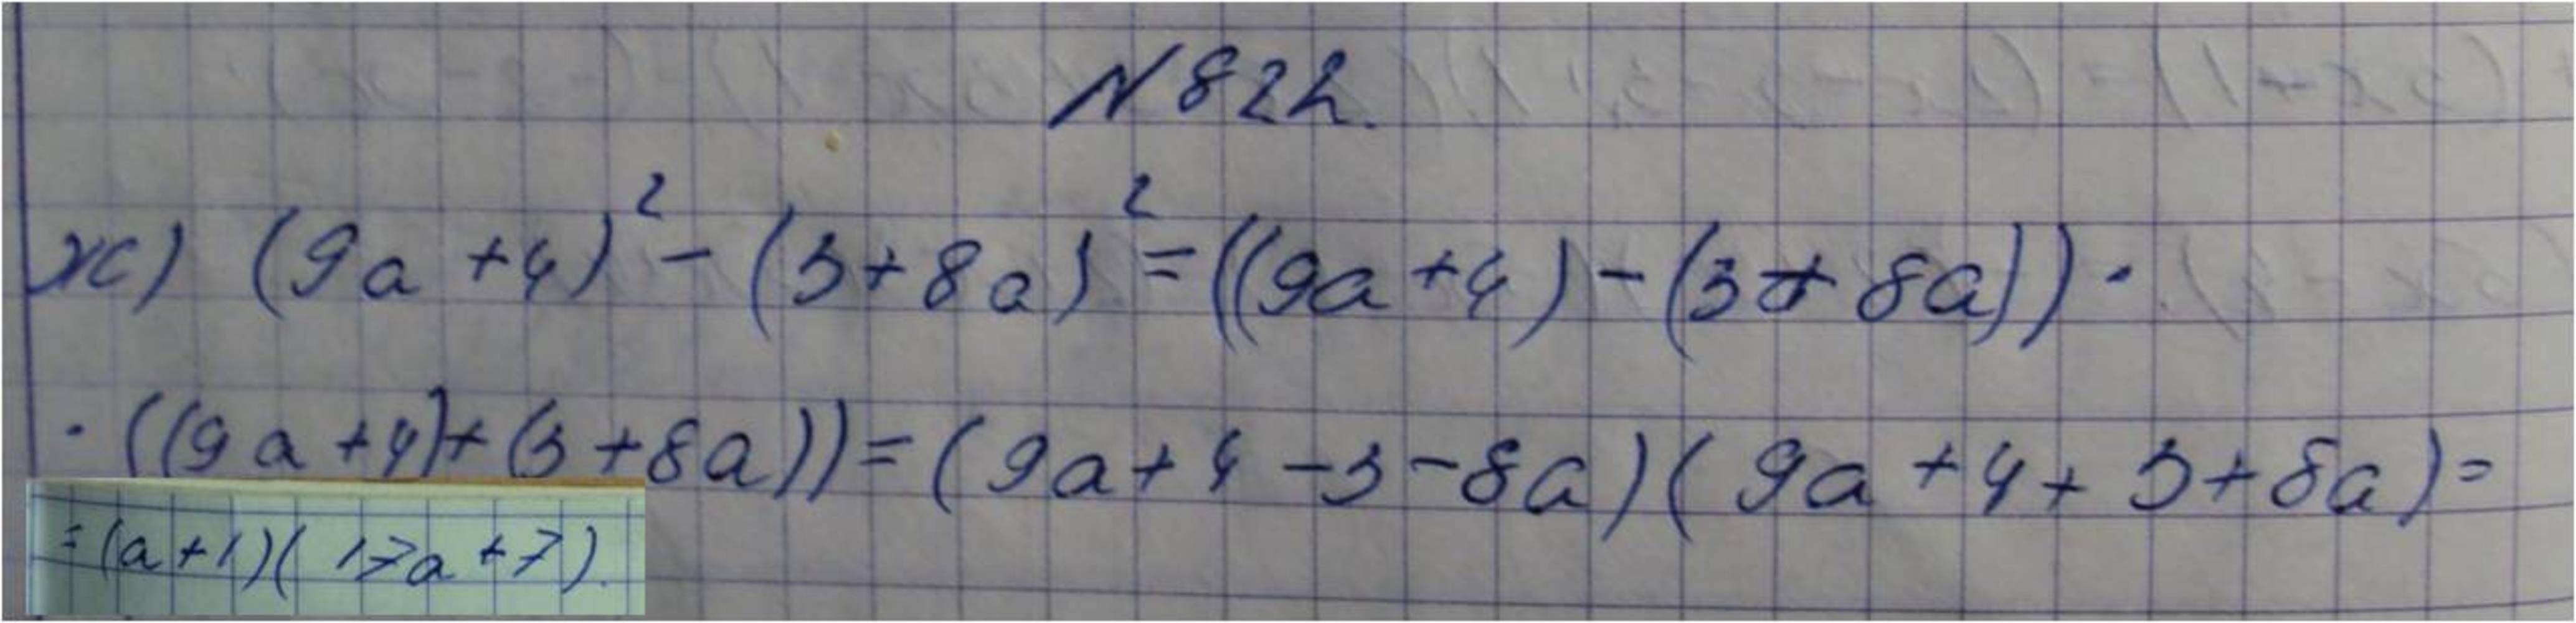 N822.
ж) (9a+4)² - (3+8a)² = ((9a+4) - (3+8a)) ·
· ((9a+4)+(3+8a)) = (9a+4-3-8a)(9a+4+3+8a) =
= (a+1)(17a+7).